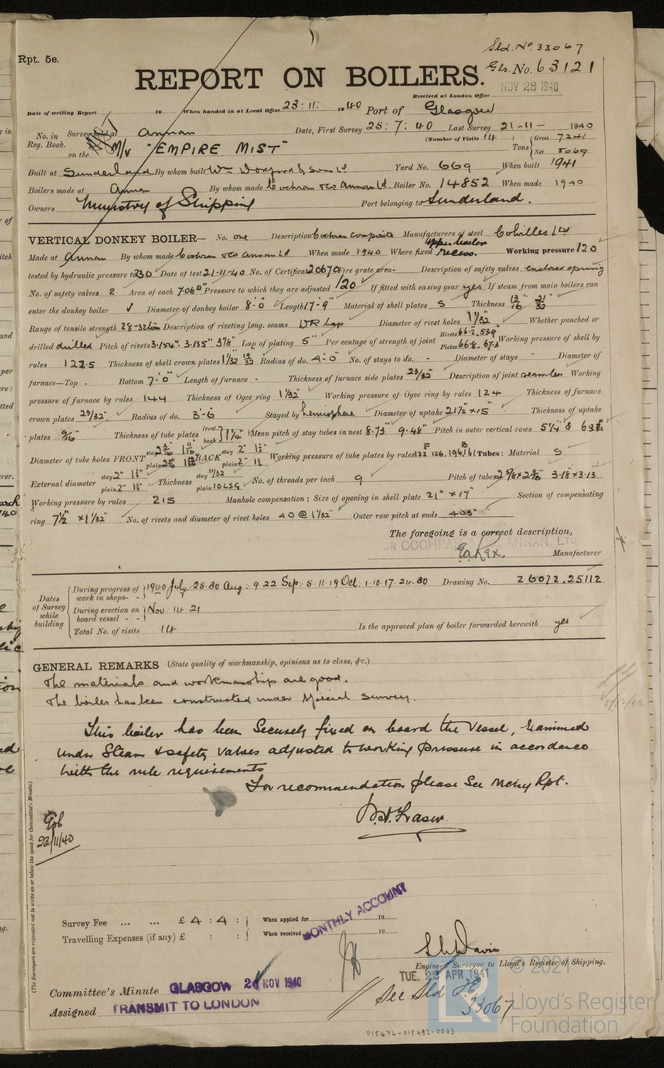 Sld. No 33067
Rpt. 5e.
Gls. No. 63121
REPORT ON BOILERS.
NOV 28 1940
Received at London Office
Date of writing Report 19 When handed in at Local Office 23:11: 1940 Port of Glasgow
No. in Survey held at Annan Date, First Survey 25:7:40 Last Survey 21-11- 1940
Reg. Book. (Number of Visits 14) Gross 7241
on the M/V "EMPIRE MIST" Tons Net 5069
Built at Sunderland By whom built Wm Doxford & Sons Ld Yard No. 669 When built 1941
Boilers made at Annan By whom made Cochran & Co Annan Ld. Boiler No. 14852 When made 1940
Owners Ministry of Shipping Port belonging to Sunderland.
VERTICAL DONKEY BOILER— No. one Description Cochran composite Manufacturers of steel Colvilles Ltd
Made at Annan By whom made Cochran & Co Annan Ld When made 1940 Where fixed recess. Working pressure 120
tested by hydraulic pressure to 230 Date of test 21-11-40 No. of Certificate 20670 Fire grate area - Description of safety valves enclosed spring
No. of safety valves 2 Area of each 7.060" Pressure to which they are adjusted 120 If fitted with easing gear yes If steam from main boilers can
enter the donkey boiler Diameter of donkey boiler 8-0 Length 17-9" Material of shell plates S Thickness
Range of tensile strength 28-32 Description of riveting long. seams DR Lap Diameter of rivet holes 1 1/32" Whether punched or
drilled drilled Pitch of rivets Lap of plating 5" Per centage of strength of joint Rivets Plates Working pressure of shell by
rules 122.5 Thickness of shell crown plates Radius of do. 4-0 No. of stays to do. - Diameter of stays - Diameter of
furnace—Top - Bottom 7-0" Length of furnace - Thickness of furnace side plates 23/32" Description of joint seamless Working
pressure of furnace by rules 144 Thickness of Ogee ring 1 1/32" Working pressure of Ogee ring by rules 124 Thickness of furnace
crown plates 23/32" Radius of do. 3-6 Stayed by hemisphere Diameter of uptake 21½ x 15" Thickness of uptake
plates 9/16" Thickness of tube plates front back Mean pitch of stay tubes in nest 8.73 9.48" Pitch in outer vertical rows
Diameter of tube holes FRONT stay plain BACK stay 2" plain 2" Working pressure of tube plates by rules Tubes: Material S
External diameter stay 2" plain 2" Thickness stay plain 10 LSG No. of threads per inch 9 Pitch of tubes 3.18 x 3.13
Working pressure by rules 215 Manhole compensation: Size of opening in shell plate 21" x 17" Section of compensating
ring 7½ x 1 1/32" No. of rivets and diameter of rivet holes 40 @ 1 1/32" Outer row pitch at ends 4.03"
The foregoing is a correct description,
Manufacturer
Dates of Survey while building
During progress of work in shops - - 1940 July 25.30 Aug: 9.22 Sep: 5.11.19 Oct: 1.10.17.24.30 Drawing No. 26072.25112
During erection on board vessel - - Nov 14 21
Total No. of visits 14 Is the approved plan of boiler forwarded herewith yes
GENERAL REMARKS (State quality of workmanship, opinions as to class, &c.)
The materials and workmanship are good.
The boiler has been constructed under Special Survey.
This boiler has been securely fixed on board the Vessel, Examined
under Steam & safety valves adjusted to working pressure in accordance
with the rule requirements
For recommendation please See Mchy Rpt.
22/11/40
Survey Fee ... ... £ 4 : 4 : When applied for 19
MONTHLY ACCOUNT
Travelling Expenses (if any) £ : : When received 19
Engineer Surveyor to Lloyd's Register of Shipping.
Committee's Minute GLASGOW NOV 1940
TUE. APR 1941
Assigned TRANSMIT TO LONDON
See Sld 33067
© 2021
Lloyd's Register
Foundation
015476-015482-0063